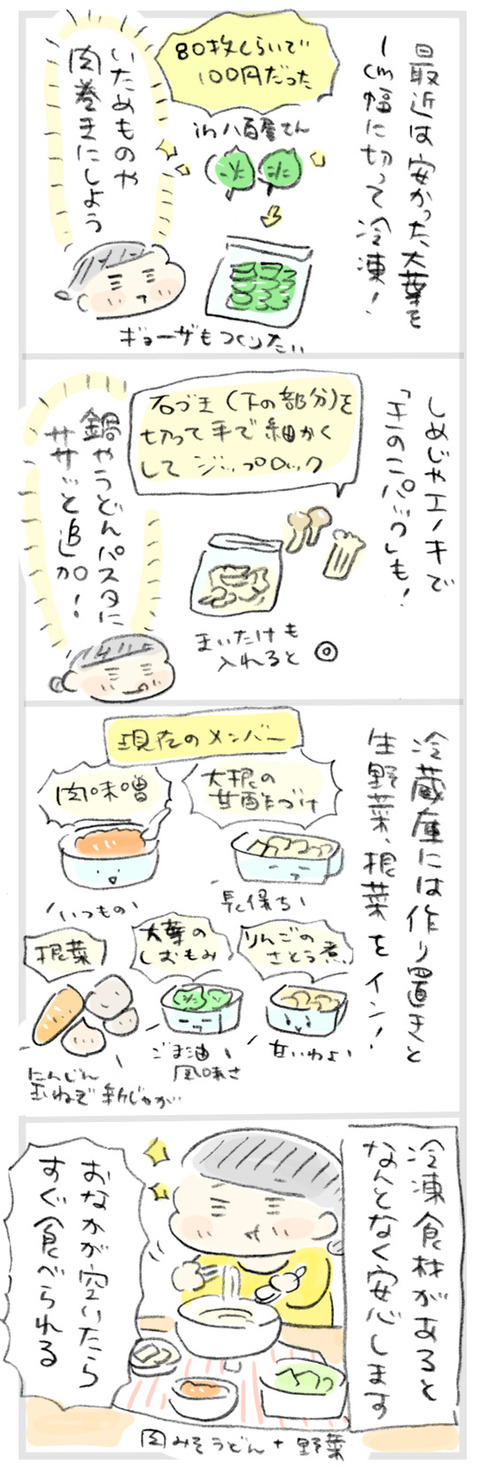 最近は安かった大葉を
1cm幅に切って冷凍!
80枚くらいで
100円だった
in八百屋さん
いためものや
肉巻きにしよう
ギョーザもつくりたい
しめじやエノキで
「きのこパック」も!
石づき(下の部分)を
切って手で細かく
して ジップロック
まいたけも
入れると◎
鍋やうどんパスタに
ササッと追加!
冷蔵庫には作り置きと
生野菜、根菜をイン!
現在のメンバー
大根の
甘酢づけ
長保ち
肉味噌
いつもの
りんごの
さとう煮
甘いわよ
大葉の
しおもみ
ごま油
風味さ
根菜
にんじん
玉ねぎ 新じゃが
冷凍食材があると
なんとなく安心します
おなかが空いたら
すぐ食べられる
肉みそうどん+野菜